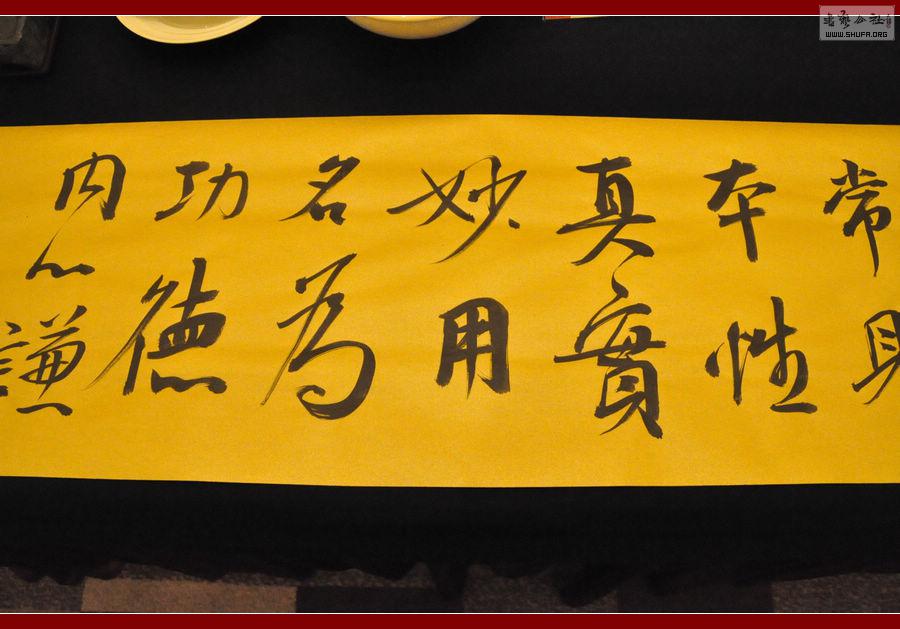 常見
本性
真實
妙用
名為
功德
内心
謙
書藝公社
WWW.SHUFA.ORG